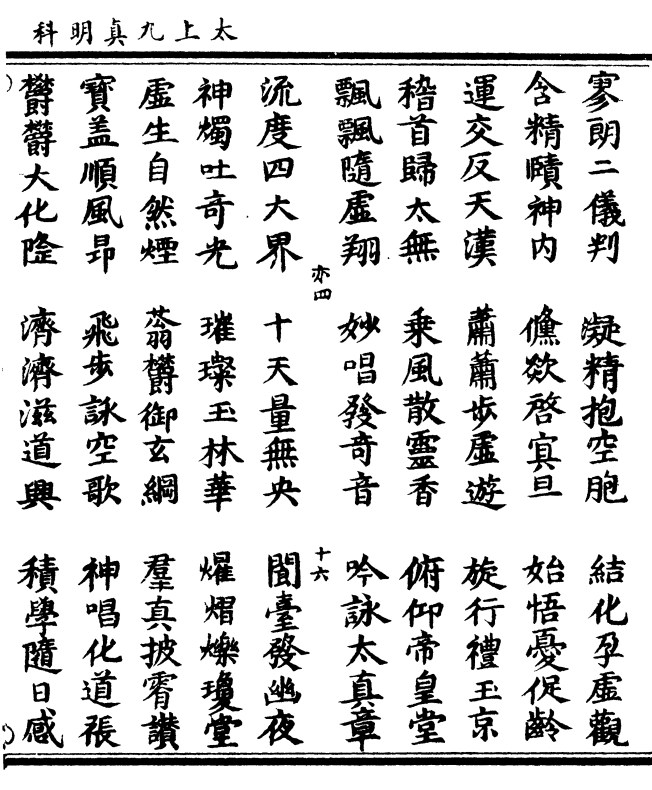 太上九真明科
寥朗二儀判 凝精抱空胞 結化孕虛觀
含精賾神内 儵欻啓冥旦 始悟憂促齡
運交反天漢 蕭蕭步虛遊 旋行禮玉京
稽首歸太無 乗風散靈香 俯仰帝皇堂
飄飄隨虛翔 妙唱發奇音 吟詠太真章
亦四 十六
流度四大界 十天量無央 開臺發幽夜
神燭吐奇光 璀璨玉林華 燿熠爍瓊堂
虛生自然煙 蓊欝御玄綱 羣真披霄讃
寶盖順風昻 飛步詠空歌 神唱化道張
欝欝大化隆 濟濟滋道興 積學隨日感